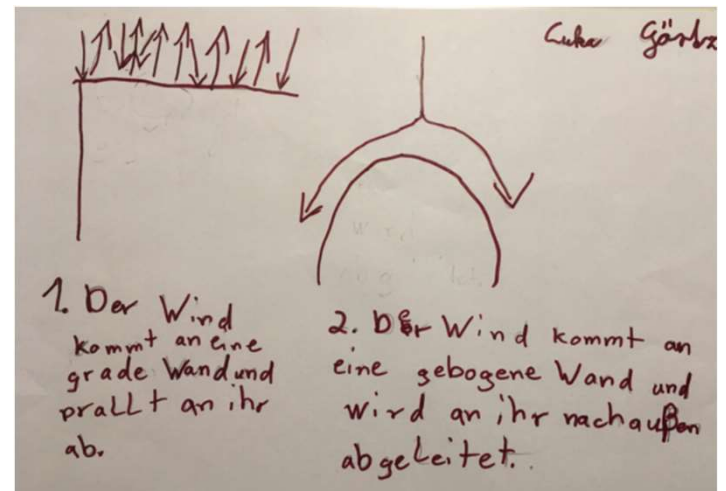 Luka
1. Der Wind
kommt an eine
grade Wand und
prallt an ihr
ab.
2. Der Wind kommt an
eine gebogene Wand und
wird an ihr nach außen
abgeleitet.